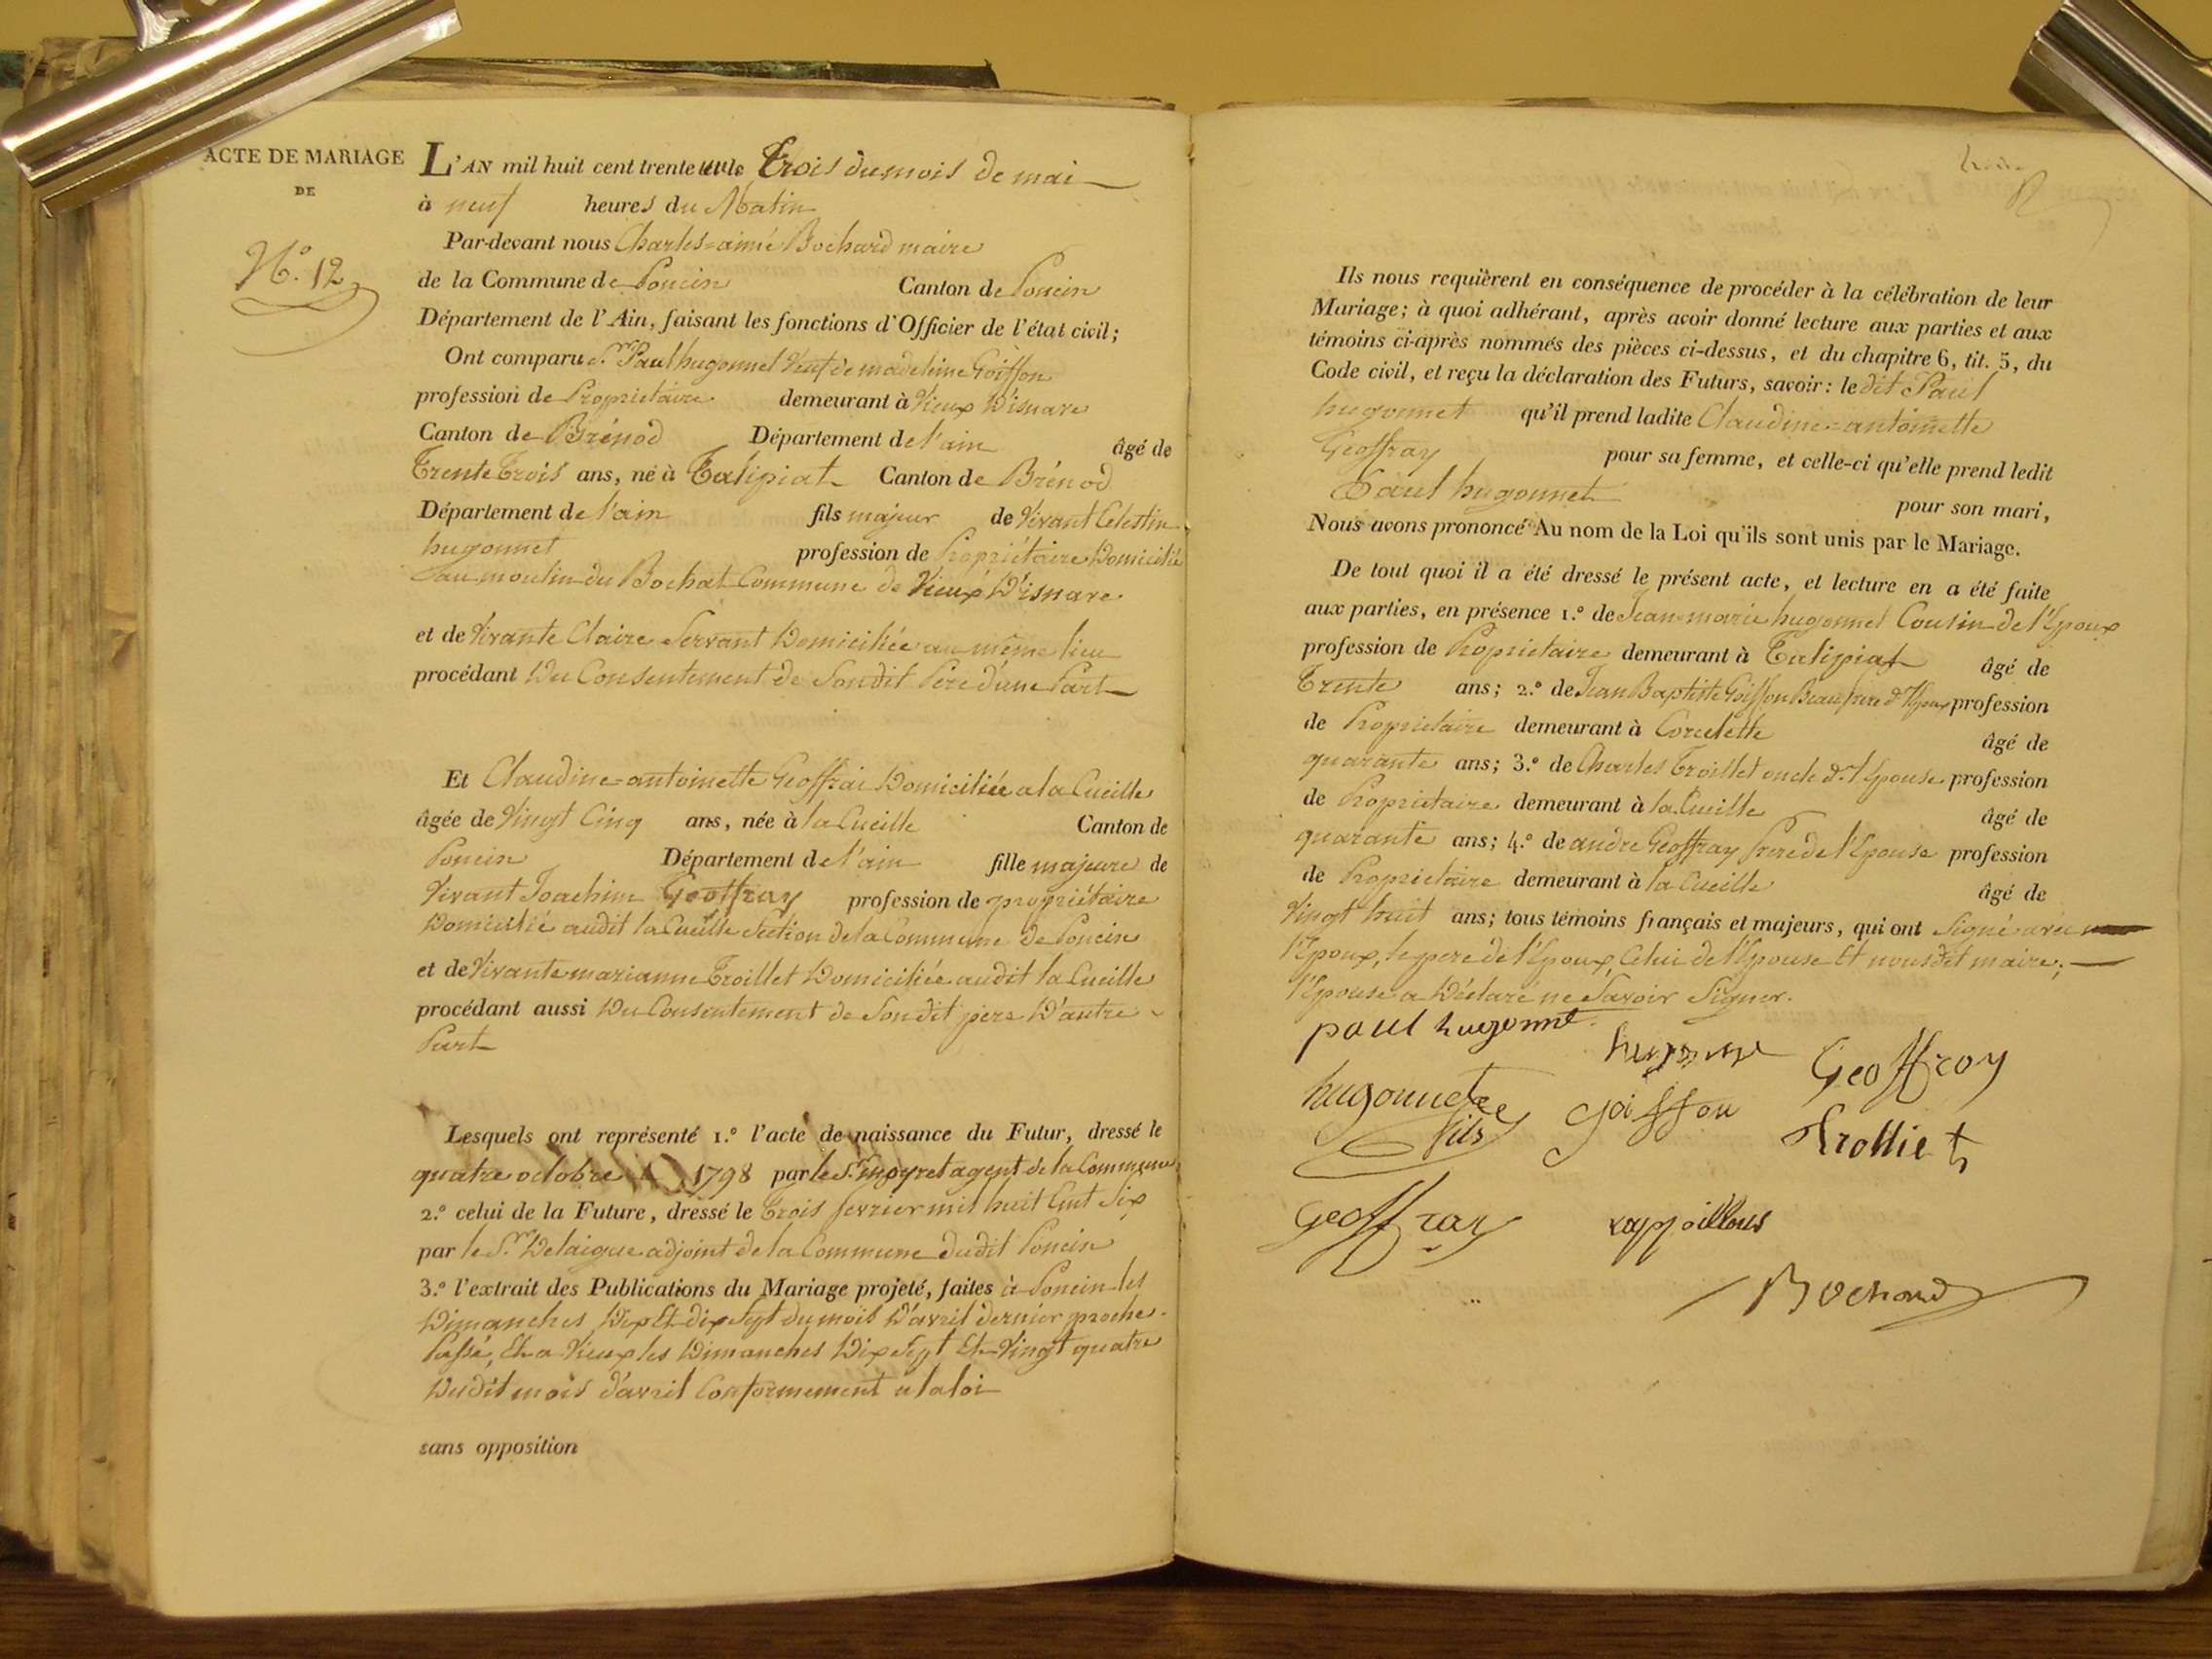 ACTE DE MARIAGE
DE
N.° 12
L'AN mil huit cent trente un le Trois du mois de mai
à neuf heures du Matin
Par-devant nous Charles=aimé Bochard maire
de la Commune de Poncin Canton de Poncin
Département de l'Ain, faisant les fonctions d'Officier de l'état civil;
Ont comparu S.r Paul hugonnet Veuf de madeleine Goiffon
profession de Proprietaire demeurant à Vieux D'isnave
Canton de Brénod Département de l'ain âgé de
Trente Trois ans, né à Talipiat Canton de Brénod
Département de l'ain fils majeur de Vivant Celestin
hugonnet profession de Propriétaire Domicilié
au moulin du Bochat Commune de Vieux D'isnave
et de Vivante Claire Servant Domiciliée au même lieu
procédant Du Consentement de Son dit Pere d'une Part
Et Claudine=antoinette Geoffrai Domiciliée a la Cueille
âgée de Vingt Cinq ans, née à la Cueille Canton de
Poncin Département de l'ain fille majeure de
Vivant Joachim Geoffray profession de propriétaire
Domicilié audit la Cueille Section de la Commune de Poncin
et de Vivante marianne Troillet Domiciliée audit la Cueille
procédant aussi Du Consentement de Son dit pere D'autre
Part
Lesquels ont représenté 1.° l'acte de naissance du Futur, dressé le
quatre octobre 1798 par le S.r moyret agent de la Commune
2.° celui de la Future, dressé le Trois fevrier mil huit Cent Six
par le S.r Delaigue adjoint de la Commune dudit Poncin
3.° l'extrait des Publications du Mariage projeté, faites à Poncin les
Dimanches Dix Et dix Sept du mois D'avril dernier proche
Passé, Et a Vieux les Dimanches Dix Sept Et Vingt quatre
Dudit mois d'avril Conformement a la loi
sans opposition
Ils nous requièrent en conséquence de procéder à la célébration de leur
Mariage; à quoi adhérant, après avoir donné lecture aux parties et aux
témoins ci-après nommés des pièces ci-dessus, et du chapitre 6, tit. 5, du
Code civil, et reçu la déclaration des Futurs, savoir: le dit Paul
hugonnet qu'il prend ladite Claudine=antoinette
Geoffray pour sa femme, et celle-ci qu'elle prend ledit
Paul hugonnet pour son mari,
Nous avons prononcé Au nom de la Loi qu'ils sont unis par le Mariage.
De tout quoi il a été dressé le présent acte, et lecture en a été faite
aux parties, en présence 1.° de Jean=marie hugonnet Cousin de l'Epoux
profession de Proprietaire demeurant à Talipiat âgé de
Trente ans; 2.° de Jean Baptiste Goiffon Beaufrere d. l'Epoux profession
de Proprietaire demeurant à Corcelette âgé de
quarante ans; 3.° de Charles Troillet oncle d. l'Epouse profession
de Proprietaire demeurant à la Cueille âgé de
quarante ans; 4.° de andre Geoffray frere de l'Epouse profession
de Proprietaire demeurant à la Cueille âgé de
Vingt huit ans; tous témoins français et majeurs, qui ont Signé avec
l'Epoux, le pere de l'Epoux, Celui de l'Epouse Et nous dit maire;
l'Epouse a Déclaré ne Savoir Signer.
paul hugonnet
Geoffroy
hugonnet
fils
goiffon
Trolliet
Geoffray
Bochard